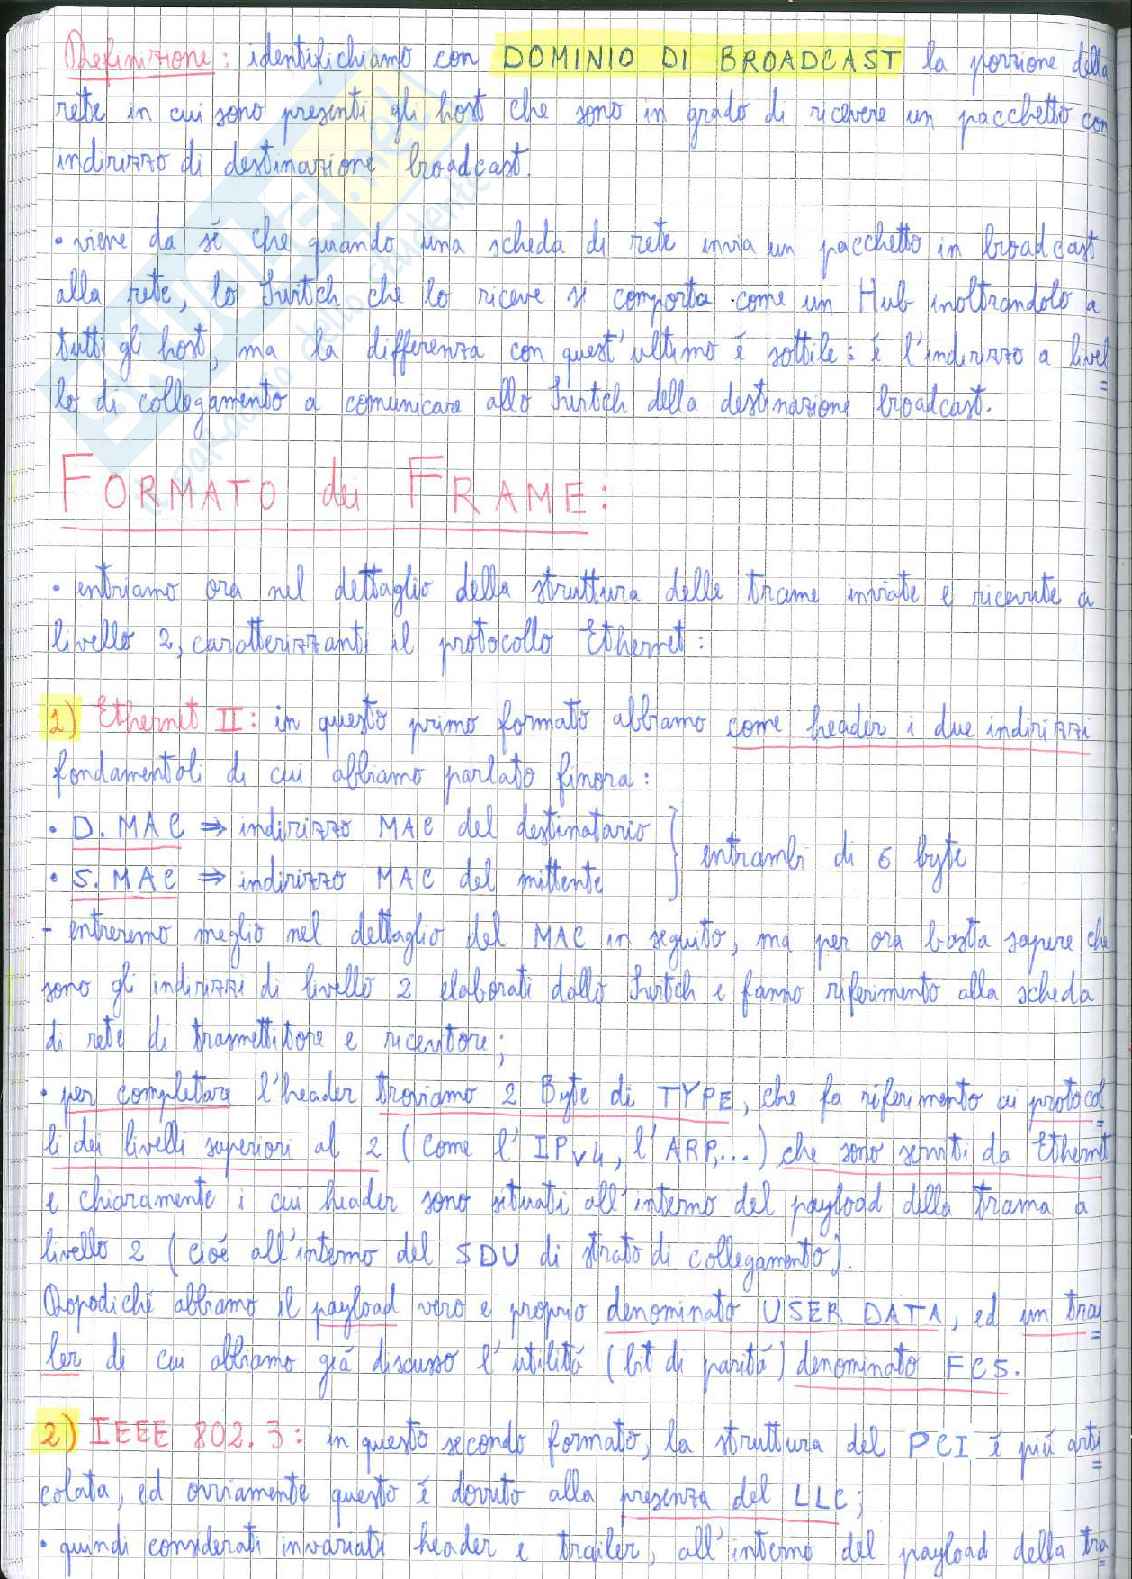 Definizione: identifichiamo con DOMINIO DI BROADCAST la porzione della
rete in cui sono presenti gli host che sono in grado di ricevere un pacchetto con
indirizzo di destinazione broadcast.
• viene da sé che quando una scheda di rete invia un pacchetto in broadcast
alla rete, lo Switch che lo riceve si comporta come un Hub inoltrandolo a
tutti gli host, ma la differenza con quest'ultimo è sottile: è l'indirizzo a livel
lo di collegamento a comunicare allo Switch della destinazione broadcast.
FORMATO dei FRAME:
• entriamo ora nel dettaglio della struttura delle trame inviate e ricevute a
livello 2, caratterizzanti il protocollo Ethernet:
1) Ethernet II: in questo primo formato abbiamo come header i due indirizzi
fondamentali di cui abbiamo parlato finora:
• D. MAC ⇒ indirizzo MAC del destinatario
• S. MAC ⇒ indirizzo MAC del mittente
} entrambi di 6 byte
- entreremo meglio nel dettaglio del MAC in seguito, ma per ora basta sapere che
sono gli indirizzi di livello 2 elaborati dallo Switch e fanno riferimento alla scheda
di rete di trasmettitore e ricevitore;
• per completare l'header troviamo 2 Byte di TYPE, che fa riferimento ai protocol
li dei livelli superiori al 2 (come l'IPv4, l'ARP,...) che sono serviti da Ethernet
e chiaramente i cui header sono situati all'interno del payload della trama a
livello 2 (cioè all'interno del SDU di strato di collegamento).
Dopodiché abbiamo il payload vero e proprio denominato USER DATA, ed un trai
ler di cui abbiamo già discusso l'utilità (bit di parità) denominato FCS.
2) IEEE 802.3: in questo secondo formato, la struttura del PCI è più arti
colata, ed ovviamente questo è dovuto alla presenza del LLC;
• quindi considerati invariati header e trailer, all'interno del payload della tra